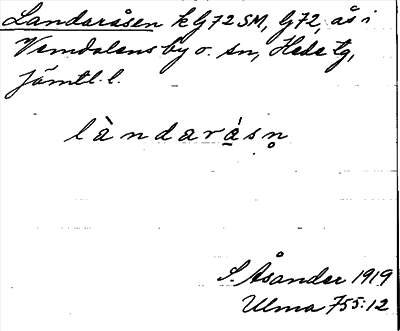 Landaråsen k G72 SM, G72, ås i
Vemdalens by o. sn, Hede tg,
Jämtl. l.
làndarásn̥
S. Åsander 1919
Ulma 755:12